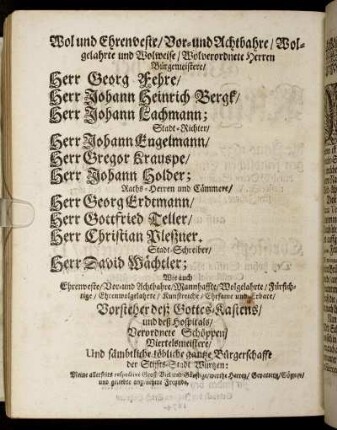 Wol und Ehrenveste/ Vor- und Achtbahre/ Wol-
gelahrte und Wolweise/ Wolverordnete Herren
Bürgemeistere/
Herr Georg Fehre/
Herr Johann Heinrich Bergk/
Herr Johann Lachmann;
Stadt-Richter/
Herr Johann Engelmann/
Herr Gregor Krauspe/
Herr Johann Holder;
Raths-Herren und Cämmere/
Herr Georg Erdtmann/
Herr Gottfried Teller/
Herr Christian Pleßner.
Stadt-Schreiber/
Herr David Wächtler;
Wie auch
Ehrenveste/ Vor- und Achtbahre/ Mannhaffte/ Wolgelahrte/ Fürsich-
tige/ Ehrenwolgelahrte/ Kunstreiche/ Ehrsame und Erbare/
Vorsteher deß Gottes-Kastens/
und deß Hospitals/
Verordnete Schöppen/
Viertelsmeistere/
Und sämbtliche löbliche gantze Bürgerschafft
der Stiffts-Stadt Wurtzen:
Meine allerseits respective Groß- und Günstige/ werthe Herren/ Gevattern/
und Freunde.